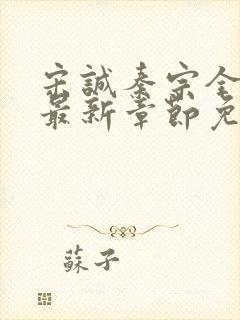 宋誠秦宗全
最新章節免
蘇子